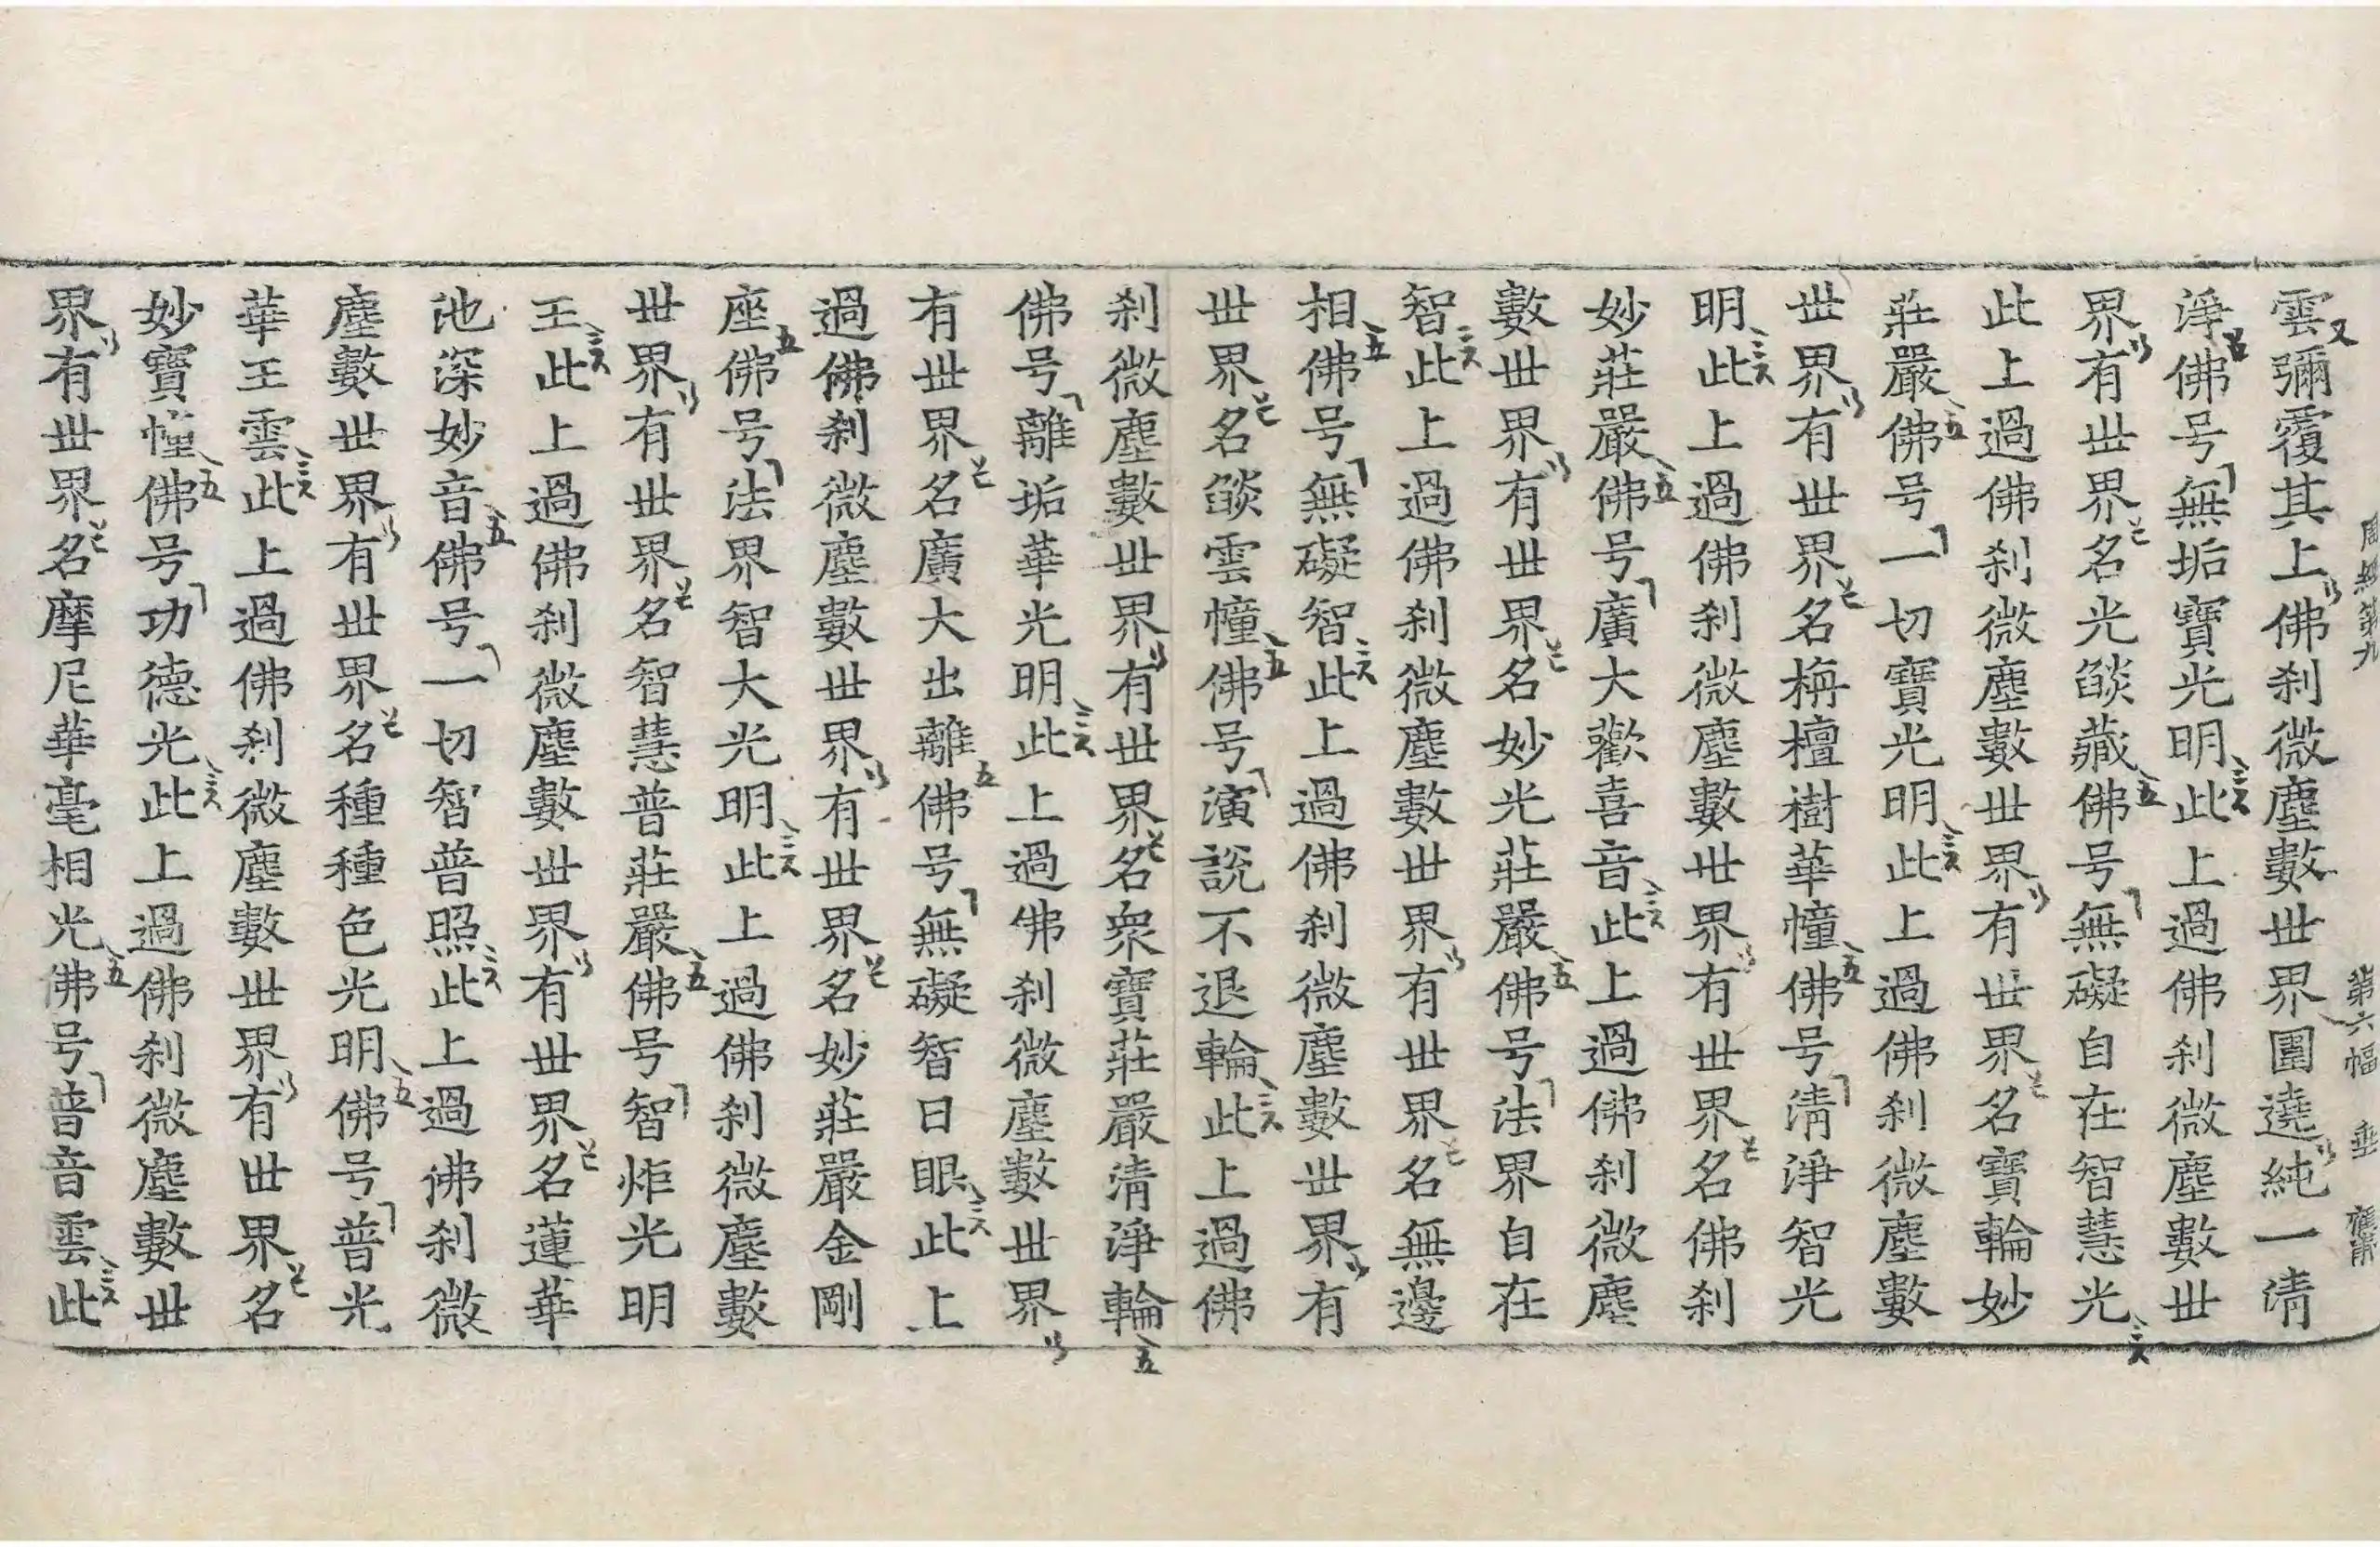 周經第九　第六幅　垂
雲彌覆其上佛刹微塵數丗界圍遶純一清
淨佛号無垢寶光明此上過佛刹微塵數丗
界有丗界名光燄藏佛号無礙自在智慧光
此上過佛刹微塵數丗界有丗界名寶輪妙
莊嚴佛号一切寶光明此上過佛刹微塵數
丗界有丗界名栴檀樹華幢佛号清淨智光
明此上過佛刹微塵數丗界有丗界名佛刹
妙莊嚴佛号廣大歡喜音此上過佛刹微塵
數丗界有丗界名妙光莊嚴佛号法界自在
智此上過佛刹微塵數丗界有丗界名無邊
相佛号無礙智此上過佛刹微塵數丗界有
丗界名燄雲幢佛号演說不退輪此上過佛
刹微塵數丗界有丗界名衆寶莊嚴清淨輪
佛号離垢華光明此上過佛刹微塵數丗界
有丗界名廣大出離佛号無礙智日眼此上
過佛刹微塵數丗界有丗界名妙莊嚴金剛
座佛号法界智大光明此上過佛刹微塵數
丗界有丗界名智慧普莊嚴佛号智炬光明
王此上過佛刹微塵數丗界有丗界名蓮華
池深妙音佛号一切智普照此上過佛刹微
塵數丗界有丗界名種種色光明佛号普光
華王雲此上過佛刹微塵數丗界有丗界名
妙寶幢佛号功德光此上過佛刹微塵數丗
界有丗界名摩尼華毫相光佛号普音雲此